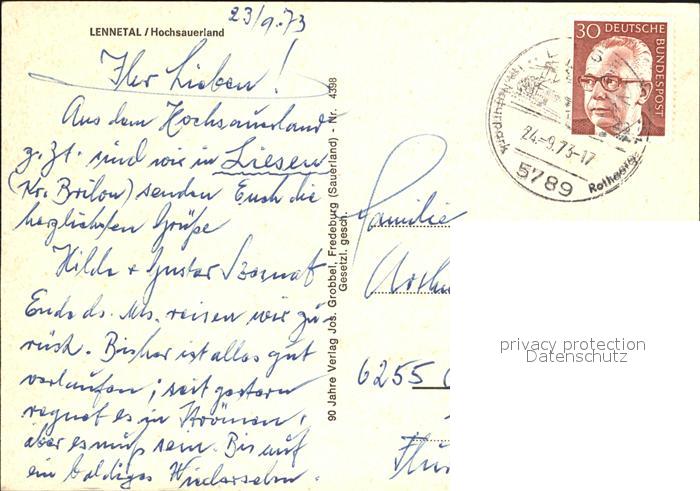 23/9.73
LENNETAL / Hochsauerland
Ihr Lieben!
Aus dem Hochsauerland
z. Zt. sind wir in Liesen
(Kr. Brilon) senden Euch die
herzlichsten Grüße
Hilde + Gustav
Ende ds. Mts. reisen wir zu-
rück. Bisher ist alles gut
verlaufen; seit gestern
regnet es in Strömen,
aber es muß sein. Bis auf
ein baldiges Wiedersehn.
90 Jahre Verlag Jos. Grobbel, Fredeburg (Sauerland) - Nr. 4398
Gesetzl. gesch.
30 DEUTSCHE
BUNDESPOST
Naturpark
24.-9.73-17
5789
Rothaarg
Familie
6255
privacy protection
Datenschutz